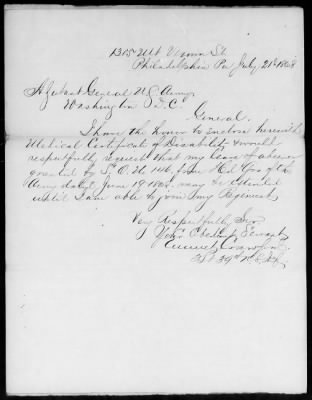 1315 Mt Vernon St.
Philadelphia Pa July 21st 1868
Adjutant General U S Army
Washington D.C.
General.
I have the honor to enclose herewith
Medical Certificate of Disability & would
respectfully request that my leave of absence
granted by S.O. No 146, from Hd Qrs of the
Army dated June 19 1868. may be extended
until I am able to join my Regiment
Very Respectfully Sir
Your Obedient Servant
Crawford
39th